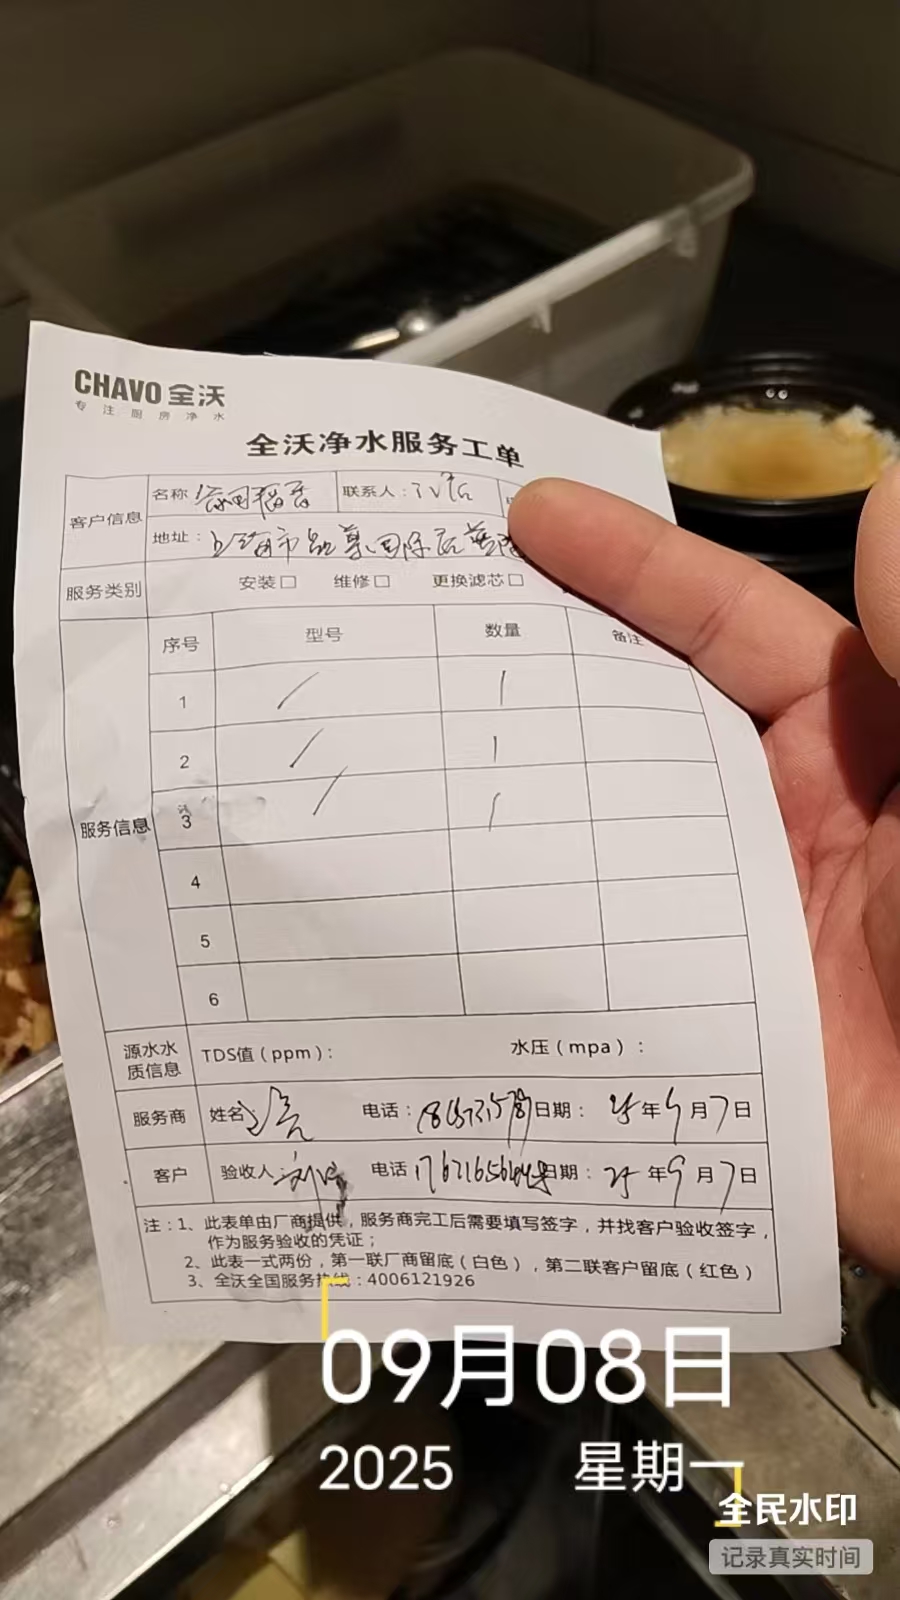 CHAVO 全沃
专注厨房净水
全沃净水服务工单
客户信息 名称 联系人：
地址：上海市
服务类别 安装□ 维修□ 更换滤芯□
服务信息 序号 型号 数量 备注
1 / 1
2 / 1
3 / 1
4
5
6
源水水质信息 TDS值（ppm）： 水压（mpa）：
服务商 姓名 电话： 日期：25年9月7日
客户 验收人 电话 日期：25年9月7日
注：1、此表单由厂商提供，服务商完工后需要填写签字，并找客户验收签字，
作为服务验收的凭证；
2、此表一式两份，第一联厂商留底（白色），第二联客户留底（红色）
3、全沃全国服务热线：4006121926
09月08日
2025 星期一
全民水印
记录真实时间